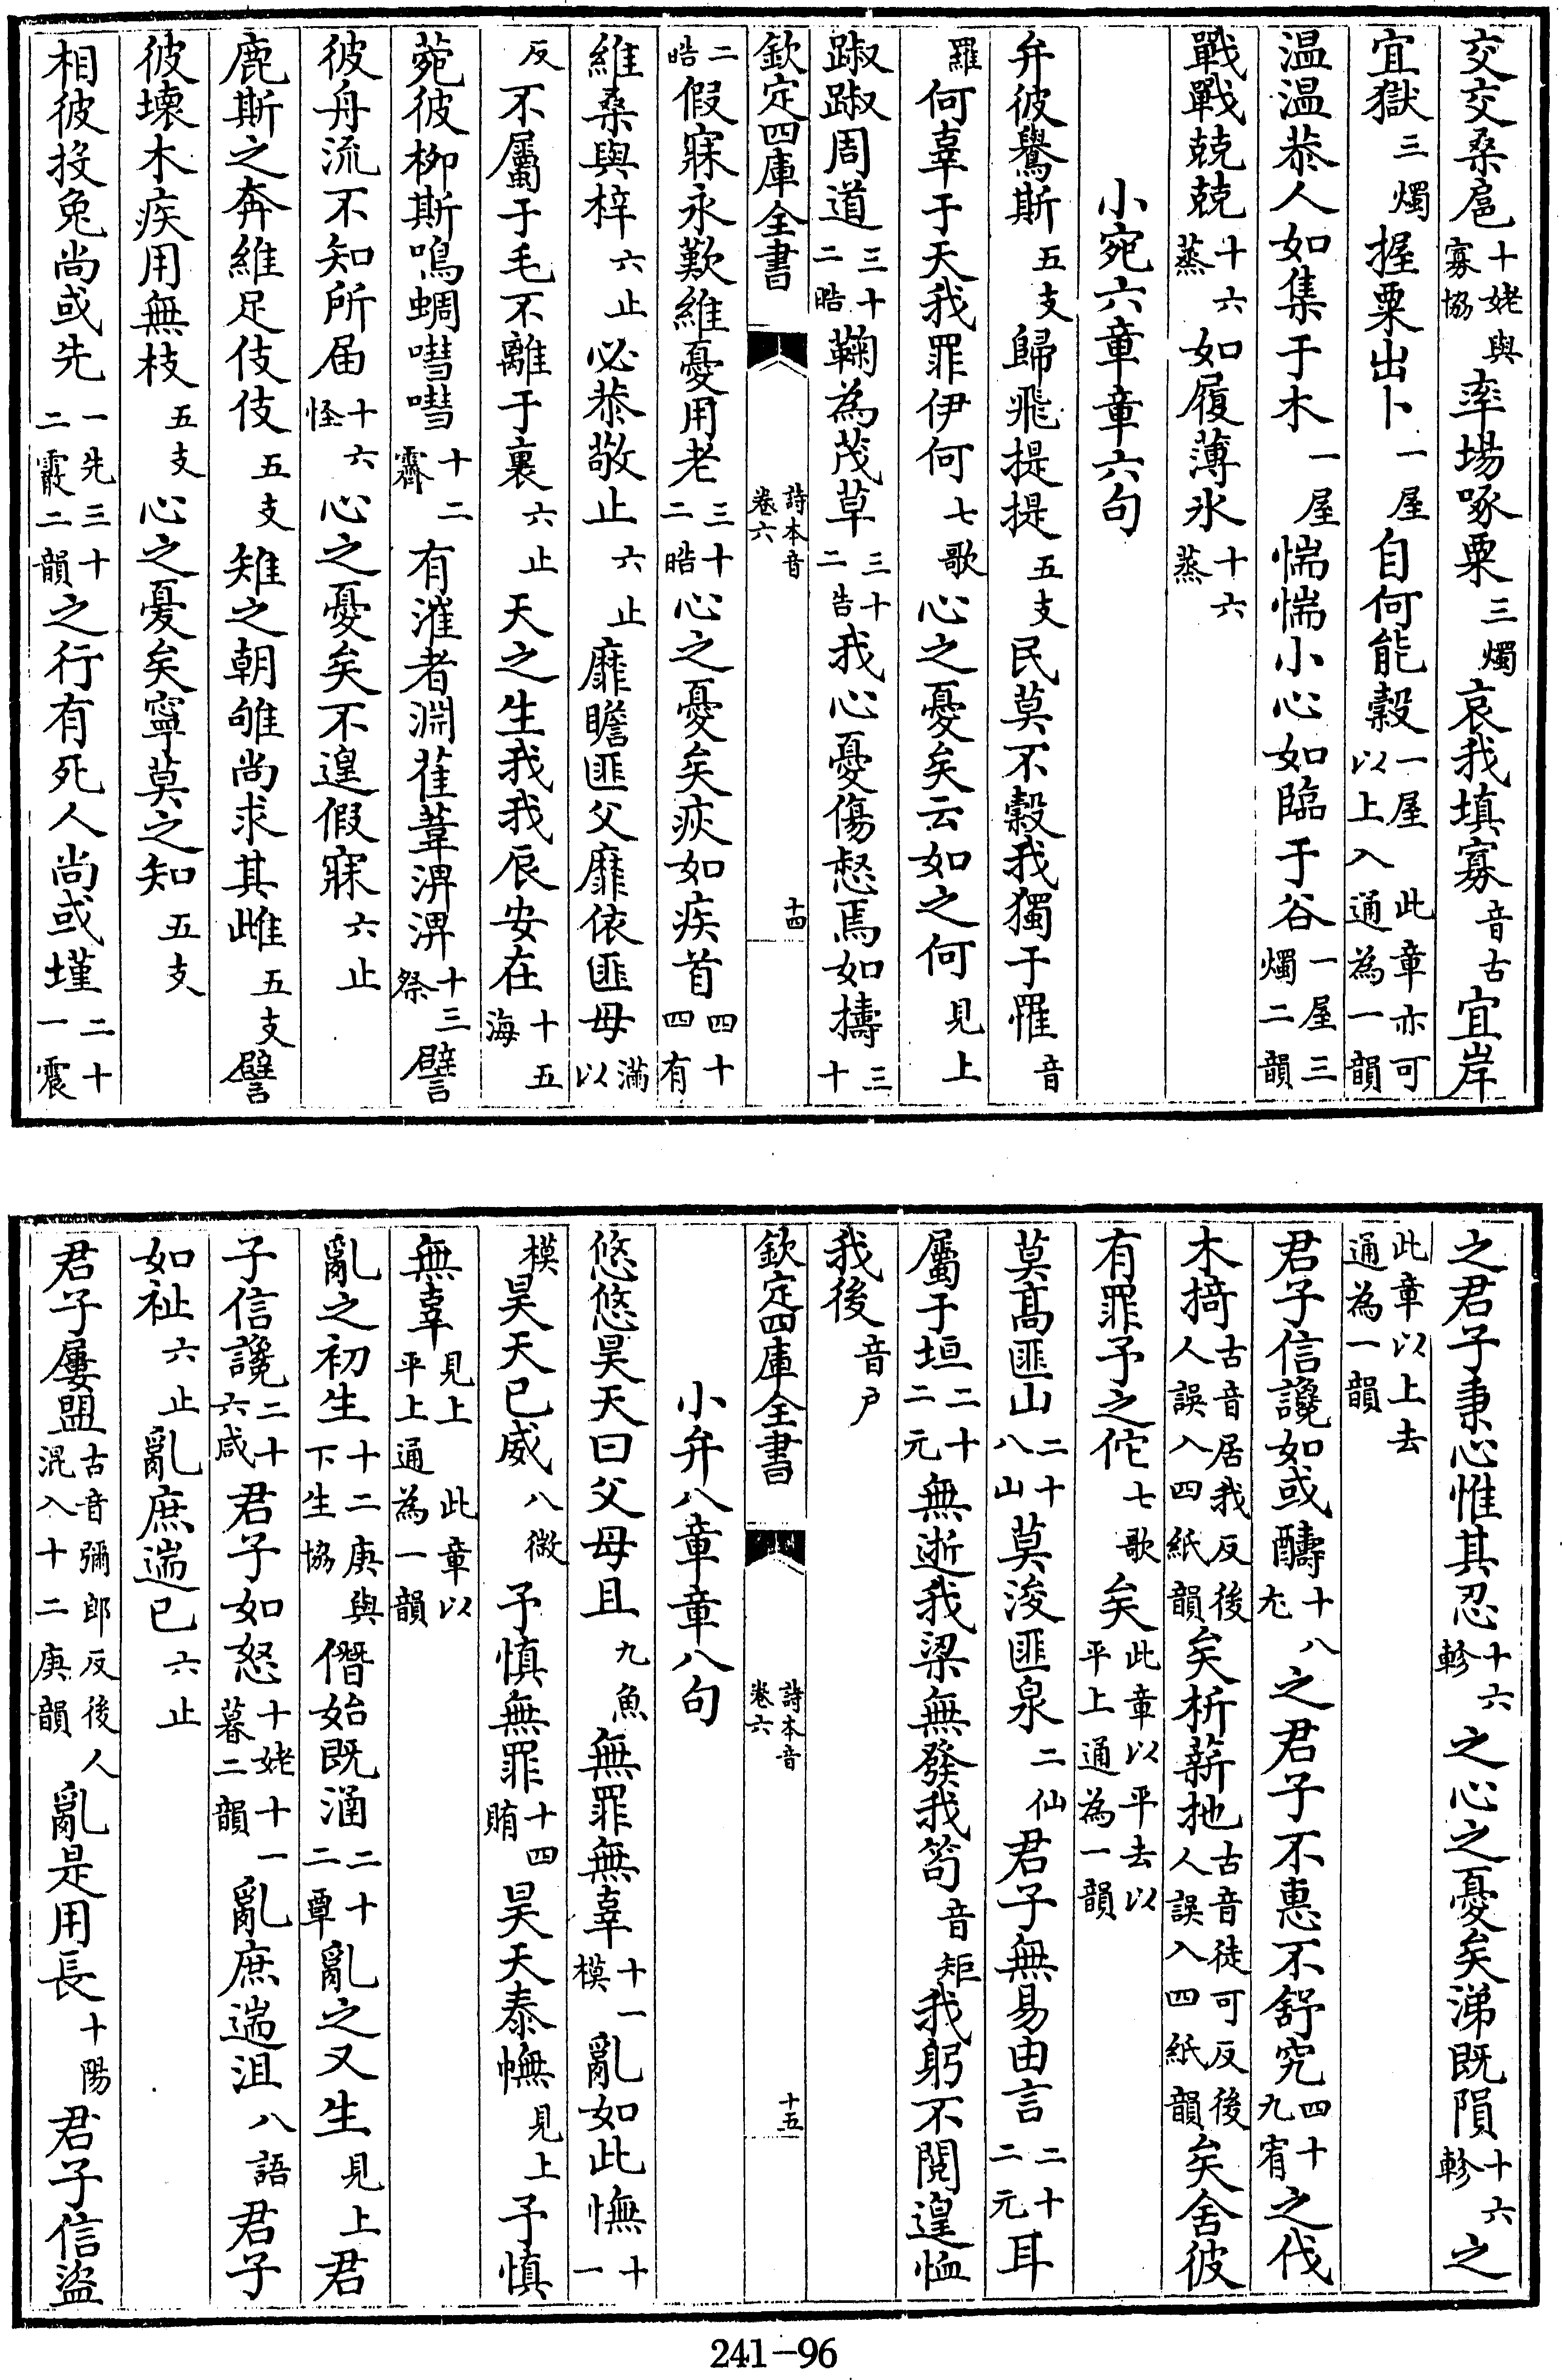 交交桑扈十姥與寡協率場啄粟三燭哀我填寡音古宜岸
宜獄三燭握粟出卜一屋自何能穀一屋此章亦可以上入通為一韻
温温恭人如集于木一屋惴惴小心如臨于谷一屋三燭二韻
戰戰兢兢十六蒸如履薄氷十六蒸
小宛六章章六句
弁彼鸒斯五支歸飛提提五支民莫不穀我獨于罹音
羅何辜于天我罪伊何七歌心之憂矣云如之何見上
踧踧周道三十二皓鞫為茂草三十二告我心憂傷惄焉如擣三十
欽定四庫全書 詩本音卷六 十四
二皓假寐永歎維憂用老三十二皓心之憂矣疢如疾首四十四有
維桑與梓六止必恭敬止六止靡瞻匪父靡依匪母滿以
反不屬于毛不離于裏六止天之生我我辰安在十五海
菀彼柳斯鳴蜩嘒嘒十二霽有漼者淵萑葦淠淠十三祭譬
彼舟流不知所届十六怪心之憂矣不遑假寐六止
鹿斯之奔維足伎伎五支雉之朝雊尚求其雌五支譬
彼壊木疾用無枝五支心之憂矣寧莫之知五支
相彼投兔尚或先一先三十二霰二韻之行有死人尚或墐二十一震
之君子秉心惟其忍十六軫之心之憂矣涕既隕十六軫之
此章以上去通為一韻
君子信讒如或醻十八尤之君子不惠不舒究四十九宥之伐
木掎古音居我反後人誤入四紙韻矣析薪扡古音徒可反後人誤入四紙韻矣舍彼
有罪予之佗七歌矣此章以平去以平上通為一韻
莫髙匪山二十八山莫浚匪泉二仙君子無易由言二十二元耳
屬于垣二十二元無逝我梁無發我笱音矩我躬不閲遑恤
我後音戶
欽定四庫全書 詩本音卷六 十五
小弁八章章八句
悠悠昊天曰父母且九魚無罪無辜十一模亂如此憮十一
模昊天已威八微予慎無罪十四賄昊天泰憮見上予慎
無辜見上此章以平上通為一韻
亂之初生十二庚與下生協僭始既涵二十二覃亂之又生見上君
子信讒二十六咸君子如怒十姥十一暮二韻亂庶遄沮八語君子
如祉六止亂庶遄已六止
君子屢盟古音彌郎反後人混入十二庚韻亂是用長十陽君子信盜
241-96